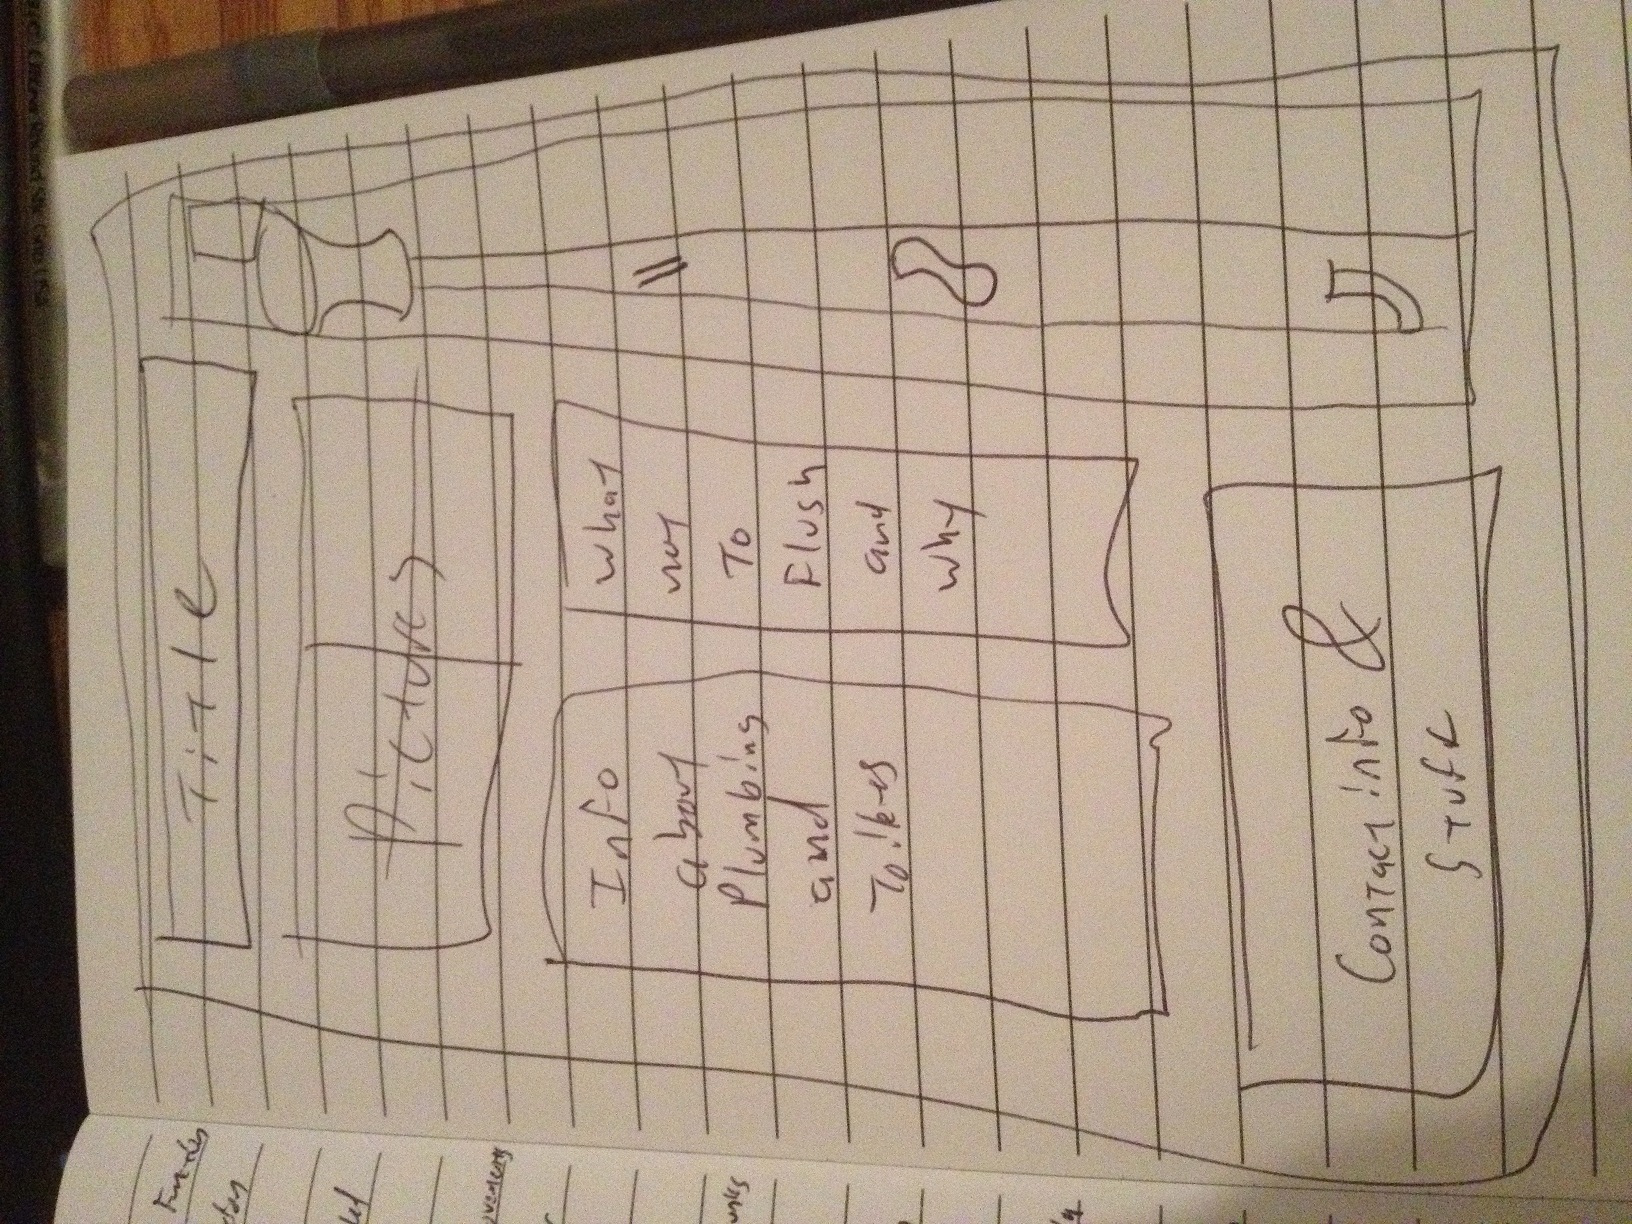 Title
Pictures
Info
about
Plumbing
and
Toilets
What
not
To
Flush
and
why
Contact info &
Stuff